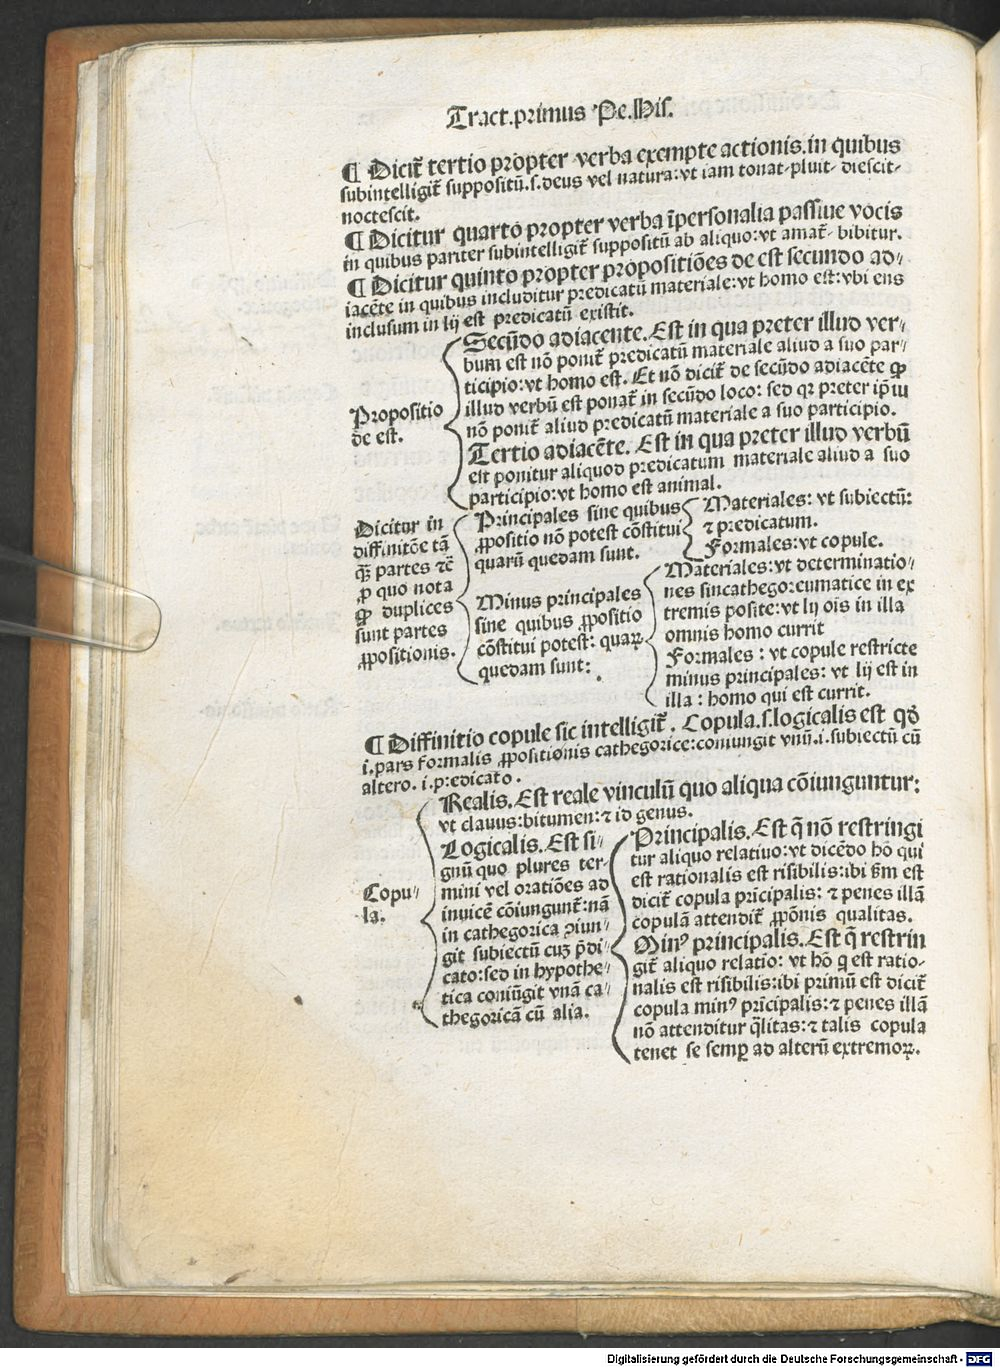 Tract.primus Pe.His.
¶ Dicit̃ tertio propter verba exempte actionis.in quibus
subintelligit̃ suppositũ.s.deus vel natura:vt iam tonat-pluit-diescit-
noctescit.
¶ Dicitur quarto propter verba ĩpersonalia passiue vocis
in quibus pariter subintelligit̃ suppositũ ab aliquo:vt amat̃-bibitur.
¶ Dicitur quinto propter propositiões de est secundo ad⸗
iacẽte in quibus includitur predicatũ materiale:vt homo est:vbi ens
inclusum in ly est predicatũ existit.
Propositio
de est.
Secũdo adiacente. Est in qua preter illud ver⸗
bum est nõ ponit̃ predicatũ materiale aliud a suo par⸗
ticipio:vt homo est. Et nõ dicit̃ de secũdo adiacẽte ꝙ
illud verbũ est ponat̃ in secũdo loco: sed qꝛ preter ip̃m
nõ ponit̃ aliud predicatũ materiale a suo participio.
Tertio adiacẽte. Est in qua preter illud verbũ
est ponitur aliquod predicatum materiale aliud a suo
participio:vt homo est animal.
Dicitur in
diffinitõe tã
q̃ꝫ partes ⁊c̃
ꝓ quo nota
ꝙ duplices
sunt partes
ꝓpositionis.
Principales sine quibus
ꝓpositio nõ potest cõstitui
quarũ quedam sunt.
Materiales: vt subiectũ:
⁊ predicatum.
Formales:vt copule.
Minus principales
sine quibus ꝓpositio
cõstitui potest: quaꝝ
quedam sunt:
Materiales:vt determinatio⸗
nes sincathegoreumatice in ex
tremis posite:vt ly ois in illa
omnis homo currit
Formales: vt copule restricte
minus principales: vt ly est in
illa: homo qui est currit.
¶ Diffinitio copule sic intelligit̃. Copula.s.logicalis est qđ
i.pars formalis ꝓpositionis cathegorice:coniungit vnũ.i.subiectũ cũ
altero.i.predicato.
Copu⸗
la.
Realis. Est reale vinculũ quo aliqua cõiunguntur:
vt clauus:bitumen:⁊ id genus.
Logicalis. Est si⸗
gnũ quo plures ter⸗
mini vel oratiões ad
inuicẽ cõiungunt̃:nã
in cathegorica ꝯiun⸗
git subiectũ cuꝫ p̃di⸗
cato:sed in hypothe⸗
tica coniũgit vnã ca⸗
thegoricã cũ alia.
Principalis. Est q̃ nõ restringi
tur aliquo relatiuo:vt dicẽdo hõ qui
est rationalis est risibilis:ibi s̃m est
dicit̃ copula prĩcipalis: ⁊ penes illã
copulã attendit̃ ꝓp̃õnis qualitas.
Minꝰ principalis. Est q̃ restrin
git̃ aliquo relatio: vt hõ q̃ est ratio⸗
nalis est risibilis:ibi primũ est dicit̃
copula minꝰ prĩcipalis:⁊ penes illã
nõ attenditur q̃litas:⁊ talis copula
tenet se semꝑ ad alterũ extremoꝝ.
Digitalisierung gefördert durch die Deutsche Forschungsgemeinschaft - DFG